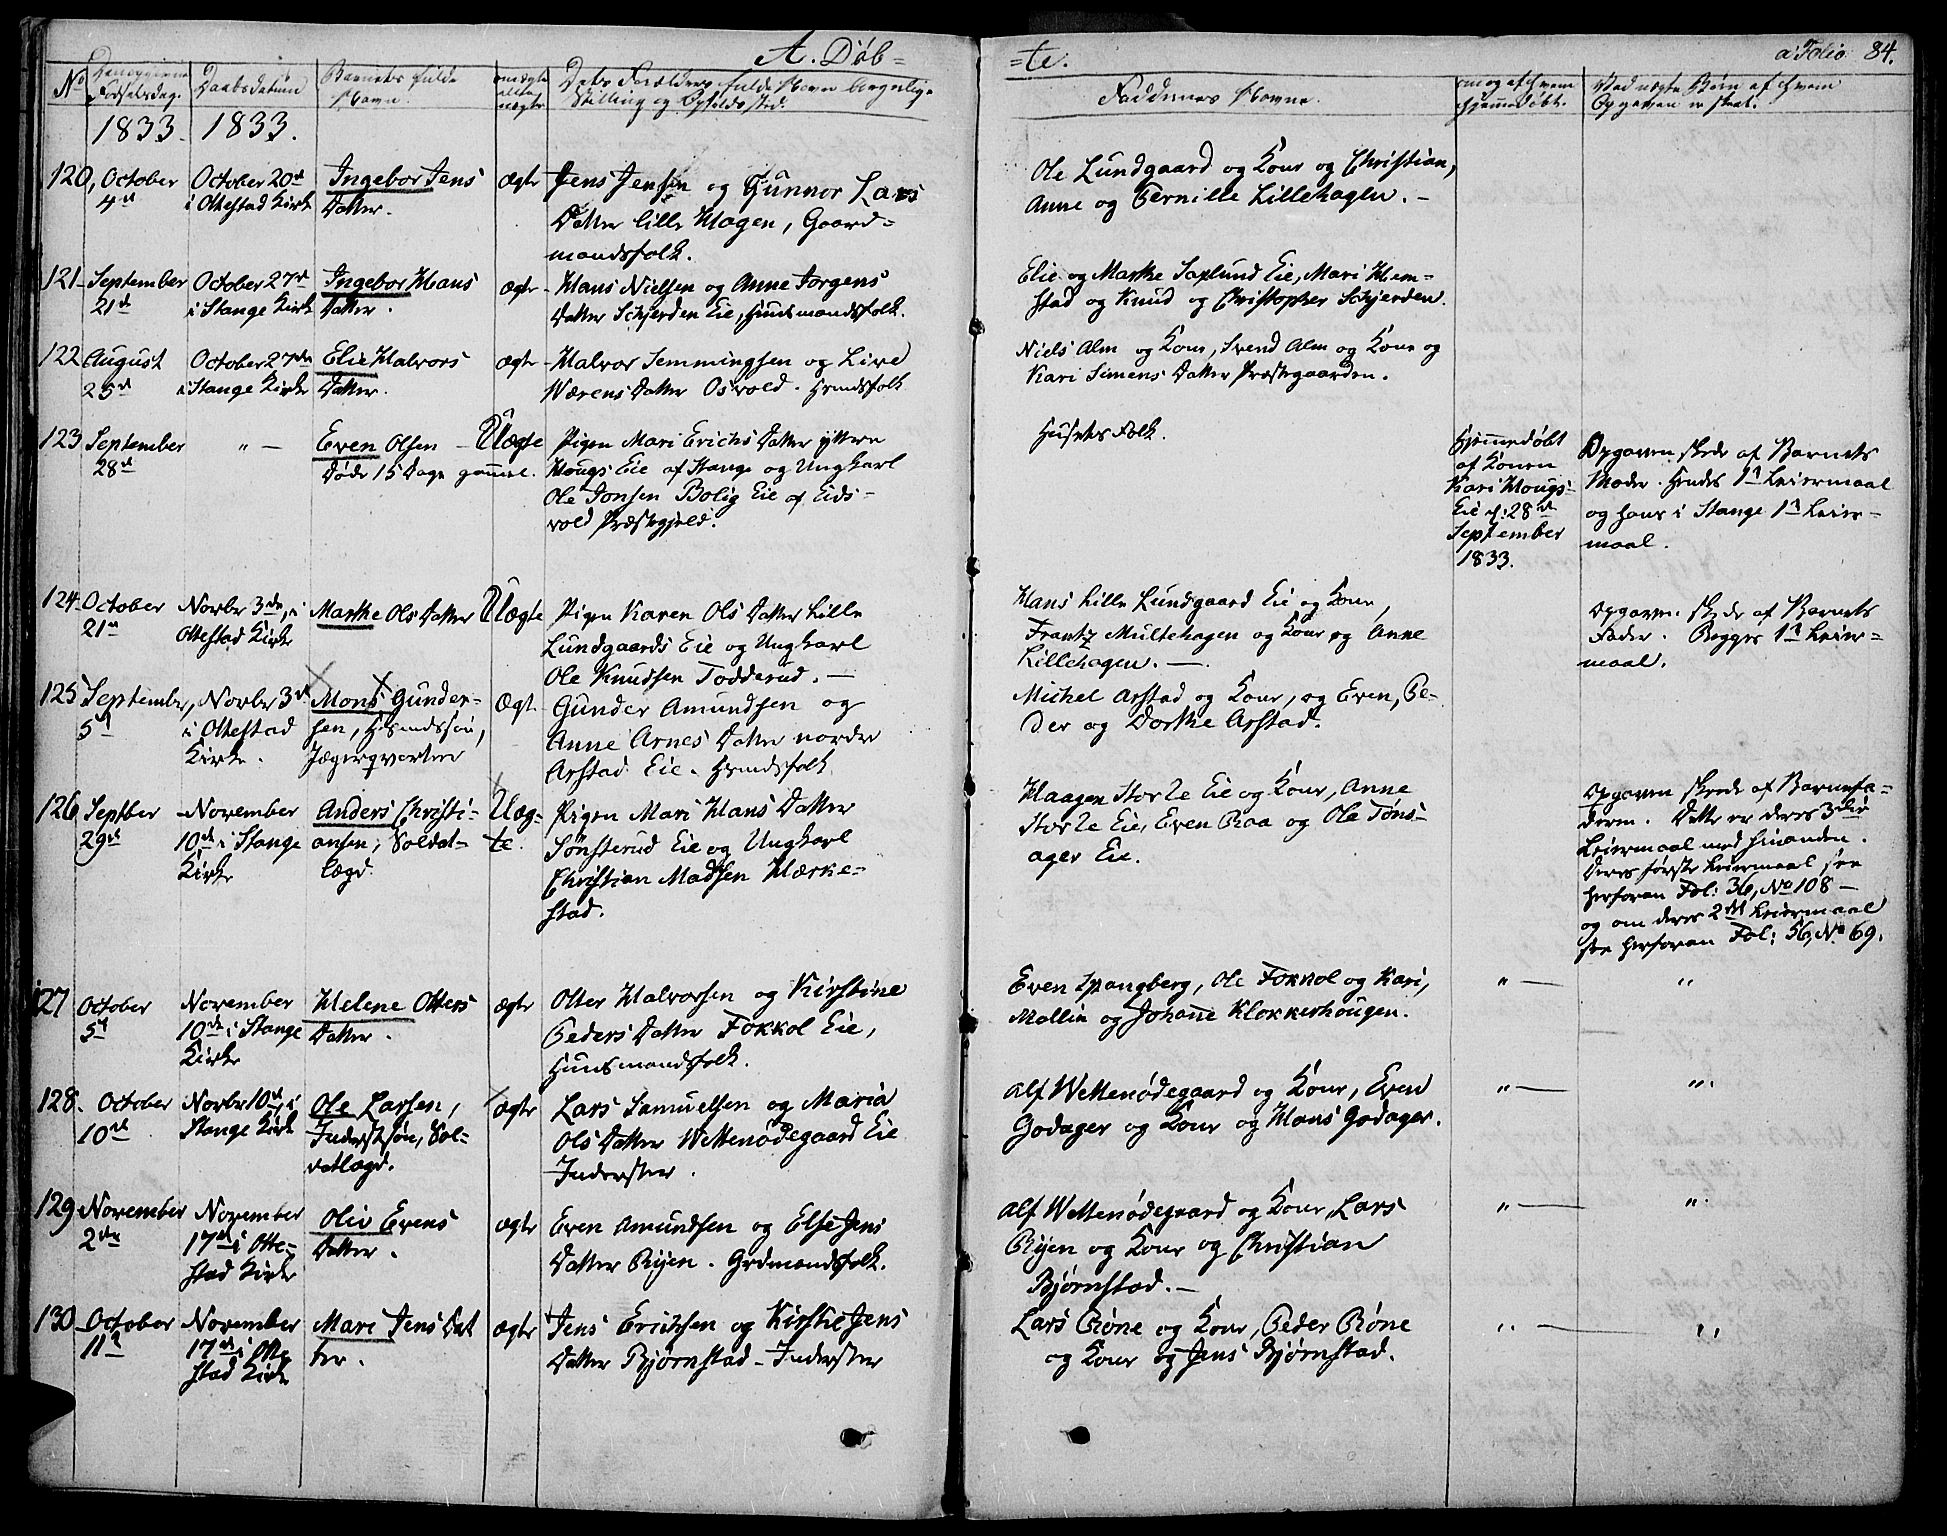 A. Døb-
-te.
a Folio 84.
No
Fødselsdag.
Daabsdatum
Barnets fulde
Navn.
ægte
eller
uægte
Dets Forældres fulde Navn borgerlige
Stilling og Opholdssted.
Faddernes Navne.
og af hvem
hjemmedøbt.
Ved uægte Børn af hvem
Opgaven er skeet.
1833.
1833.
120, October
4de
October 20de
i Ottestad Kirke
Ingebor Jens
Datter.
ægte
Jens Jensen og Gunnor Lars
Datter lille Hagen, Gaard-
mandsfolk.
Ole Lundgaard og Kone og Christian,
Anne og Pernille Lillehagen. -
121- September
21de
October 27de
i Stange Kirke
Ingebor Hans
Datter.
ægte
Hans Nielsen og Anne Jorgens
Datter Schjerden Eie, Huusmandsfolk.
Elie og Marthe Saxlund Eie, Mari Hem-
stad og Knud og Christopher Schjerden.
122 August
25de
October 27de
i Stange Kirke
Elie Halvors
Datter.
ægte
Halvor Semmingsen og Live
Wærens Datter Osvold. Hsmdsfolk
Niels Alm og Kone, Svend Alm og Kone og
Kari Simens Datter Præstegaarden.
123 September
28de
" -
Even Olsen -
Døde 15 Dage gammel.
Uægte
Pigen Mari Erichs Datter yttere
Hougs Eie af Stange og Ungkarl
Ole Jonsen Bolig Eie af Eids-
vold Præstegjeld.
Husets Folk.
Hjemmedøbt
af Konen
Kari Hougs-
Eie d: 28de
September
1833.
Opgaven skede af Barnets
Moder. Hendes 1te Leiermaal
og hans i Stange 1te Leier-
maal.
124- October
21de
Novbr 3die, i
Ottestad Kirke
Marthe Ols Datter
Uægte
Pigen Karen Ols Datter Lille
Lundgaards Eie og Ungkarl
Ole Knudsen Todderud. -
Hans Lille Lundgaard Eie og Kone,
Frantz Multehagen og Kone og Anne
Lillehagen. -
Opgaven skede af Barnets
Fader. Begges 1te Leier-
maal.
125 September,
5te
Novbr 3die
i Ottestad
Kirke.
Mons Gunder-
sen, Hsmndssøn,
Jægerqvarteer
Ægte
Gunder Amundsen og
Anne Arnes Datter nordre
Arstad Eie. Hsmdsfolk.
Michel Arstad og Kone, og Even, Pe-
der og Dorthe Arstad.
126 Septber
29de
November
10de i Stange
Kirke
Anders Christi-
ansen, Soldat-
lægd.
Uæg-
te.
Pigen Mari Hans Datter
Sønsterud Eie og Ungkarl
Christian Madsen Hærke-
stad.
Haagen Stor Ze Eie og Kone, Anne
Stor Ze Eie, Even Raa og Ole Tøns-
ager Eie.
Opgaven skede af Barnefa-
deren. Dette er deres 3die
Leiermaal med hinanden.
Deres første Leiermaal, see
herforan Fol: 36, No 108 -
og om deres 2det Leiermaal
see herforan Fol: 56, No 69.
127
October
5te
November
10de i Stange
Kirke
Helene Otters
Datter.
ægte
Otter Halvorsen og Kirstine
Peders Datter Fokkol Eie,
Huusmandsfolk.
Even Spangberg, Ole Fokkol og Kari,
Mallin og Johanne Klokkerhougen.
" -
"
128. October
10de
Novbr 10de, i
Stange Kirke
Ole Larsen,
Inderstsøn, Sol-
datlægd.
ægte
Lars Samuelsen og Maria
Ols Datter Wettenødegaard Eie
Inderster.
Alf Wettenødegaard og Kone, Even
Godager og Kone og Hans Godager.
" -
".
129 November
2den
November
17de i Otte-
stad Kirke
Oliv Evens
Datter.
ægte
Even Amundsen og Else Jens
Datter Ryen. Grdmandsfolk.
Alf Wettenødegaard og Kone, Lars
Ryen og Kone og Christian
Bjørnstad. -
" -
".
130 October
11te
November
17de i Otte
stad Kirke
Mari Jens Dat
ter.
ægte
Jens Erichsen og Kirstie Jens
Datter Bjørnstad - Inderster
Lars Røne og Kone, Peder Røne
og Kone og Jens Bjørnstad.
" -
"